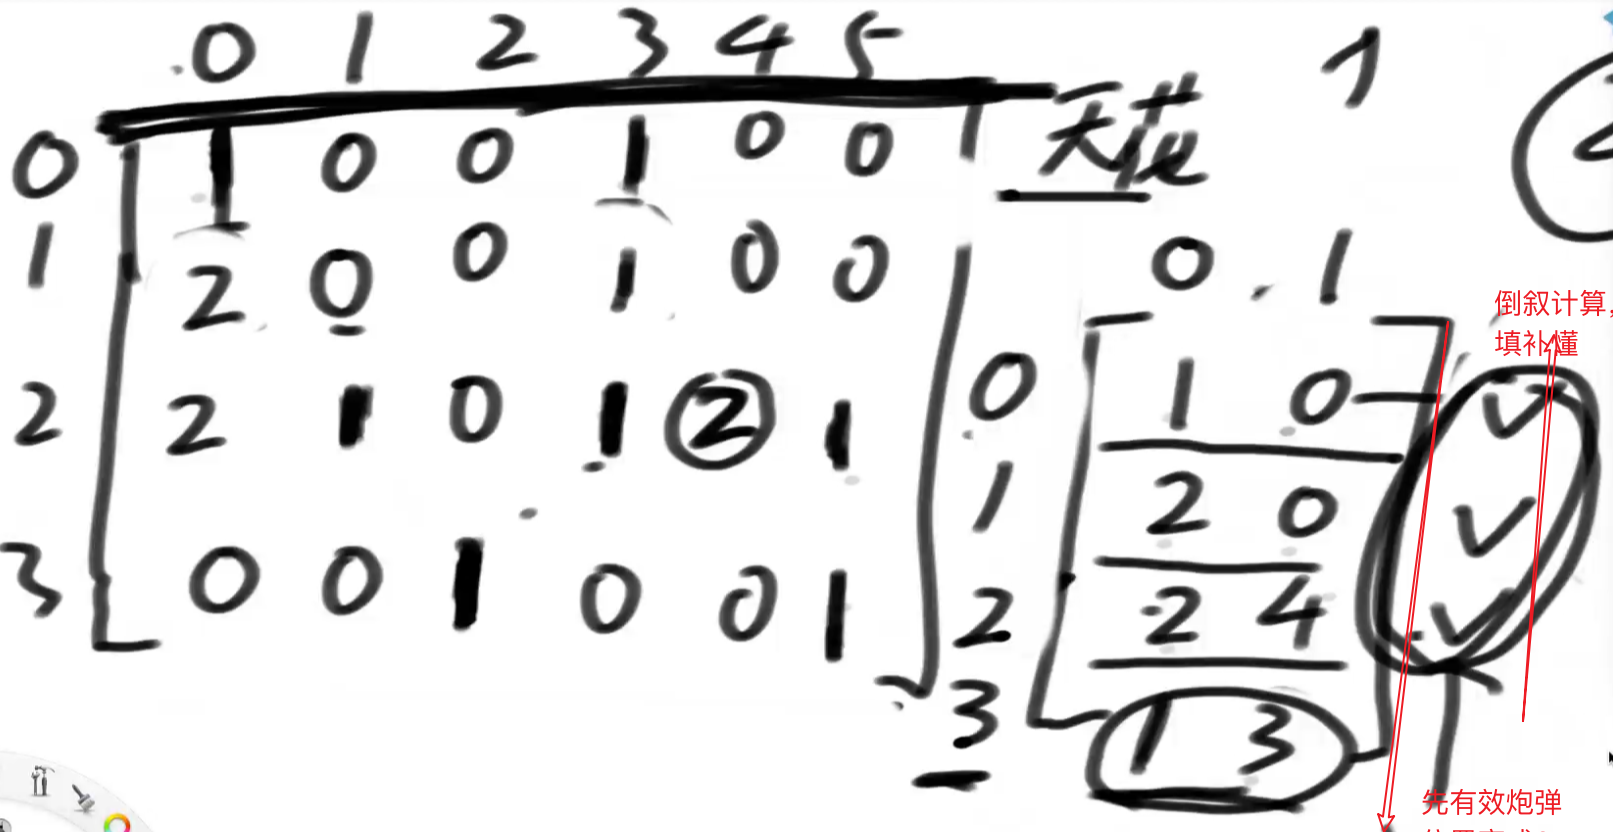 0 1 2 3 4 5
天花
1
0 1 0 0 1 0 0
1 2 0 0 1 0 0
2 2 1 0 1 2 1
3 0 0 1 0 0 1
0 1
0 1 0
1 2 0
2 2 4
3 1 3
倒叙计算，
填补懂
先有效炮弹